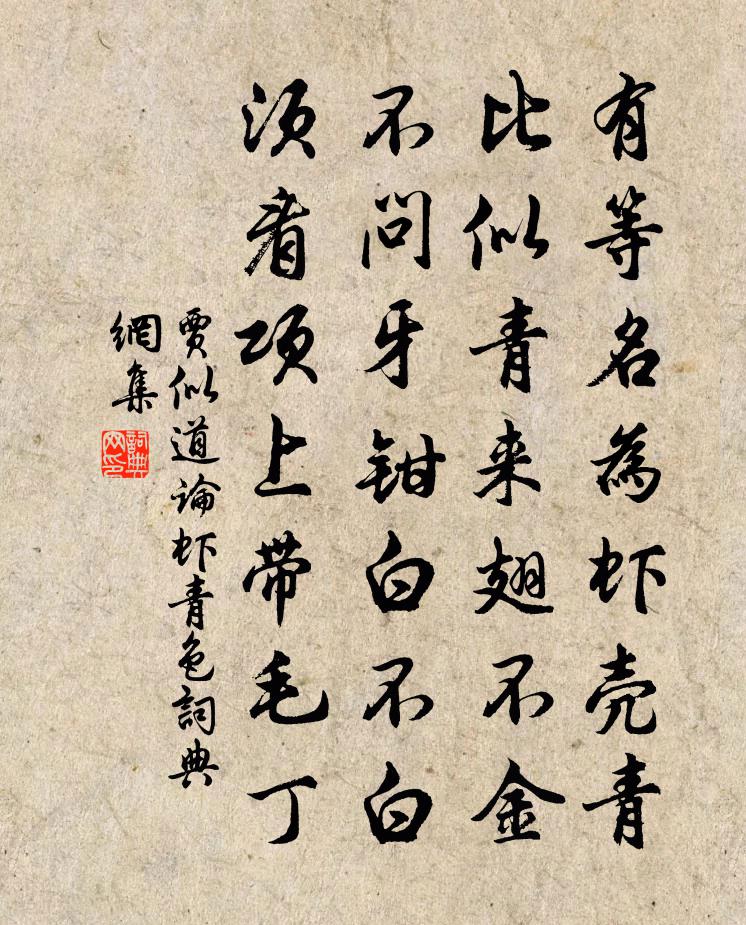 有等名為虾壳青
比似青来翅不金
不问牙钳白不白
须看项上带毛丁
賈似道论虾青色詞典
網集
詞典
网印